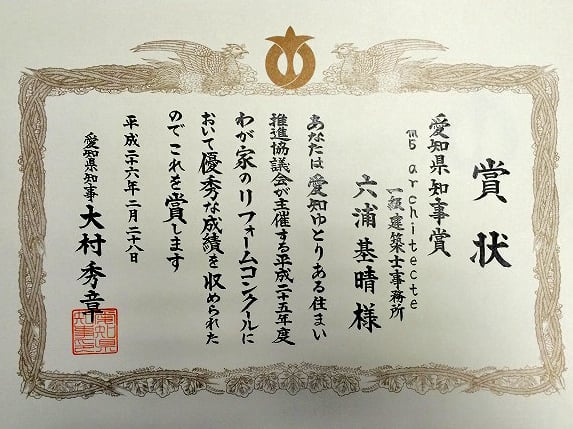 賞状
愛知県知事賞
m5 architecte
一級建築士事務所
六浦基晴様
あなたは愛知ゆとりある住まい
推進協議会が主催する平成二十五年度
わが家のリフォームコンクールに
おいて優秀な成績を収められた
のでこれを賞します
平成二十六年二月二十八日
愛知県知事 大村秀章
愛知県知事印